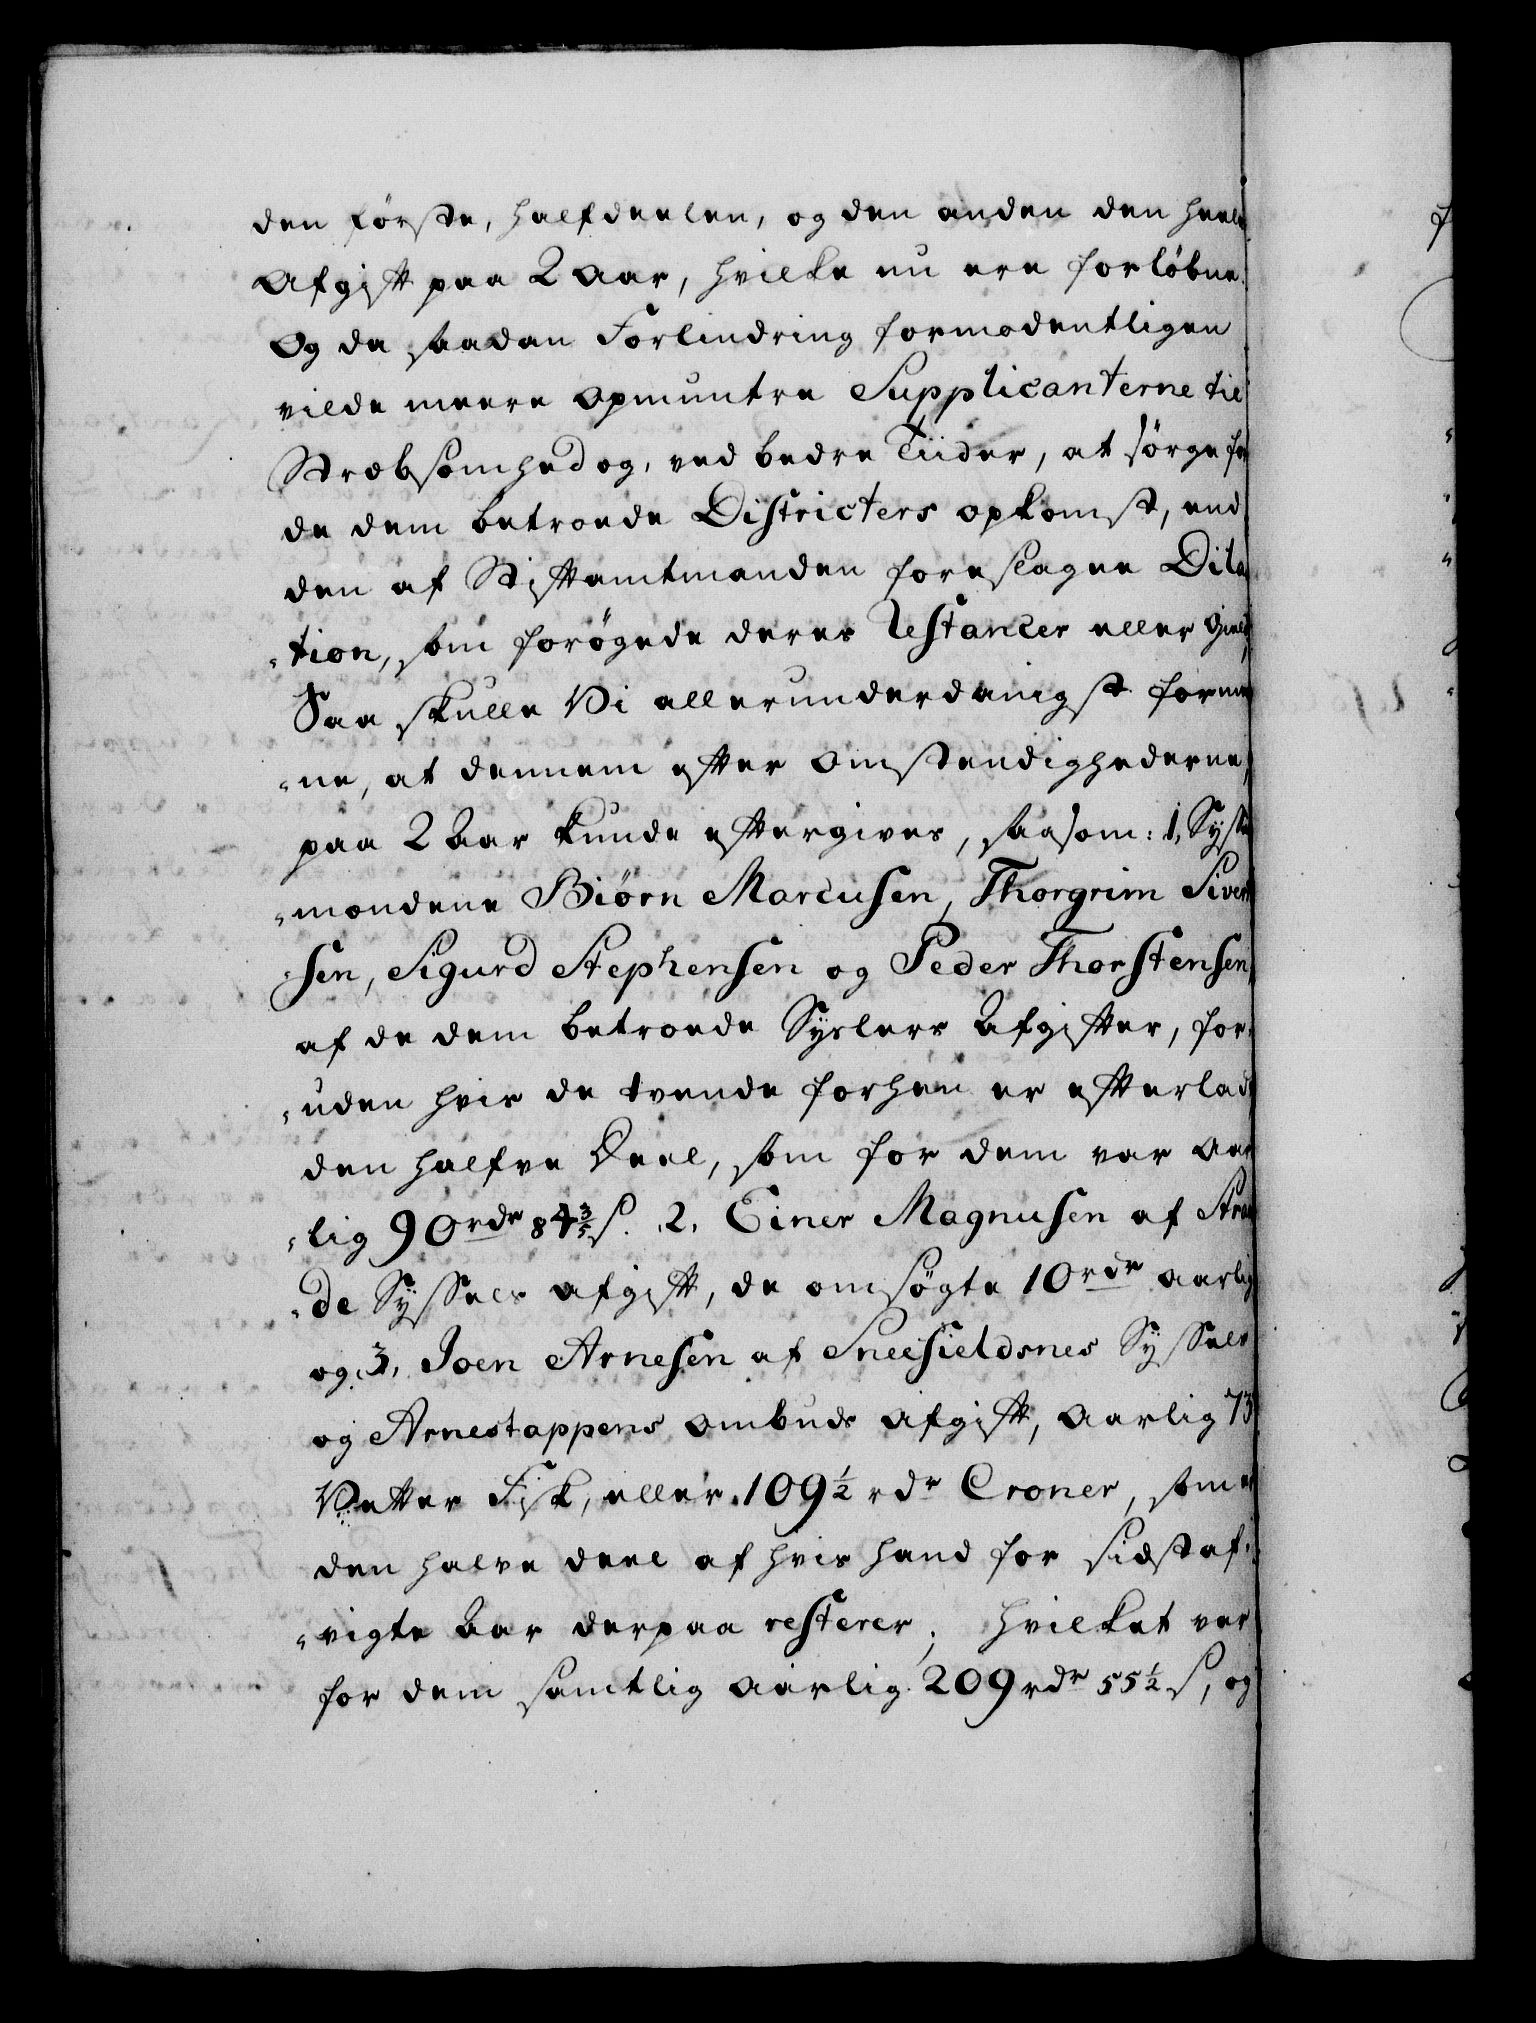 den første, halfdeelen, og den anden den heele
Afgift paa 2 Aar, hvilke nu ere forløbne.
Og da saadan Forlindring formodentligen
vilde meere opmuntre Supplicanterne til
Stræbsomhed og, ved bedre Tiider, at sørge for
de dem betroede Districters opkomst, end
den af Stiftamtmanden foreslagne Dila
-tion, som forøgede deres Restancer eller Gield,
Saa skulle Vi allerunderdanigst formee
-ne, at dennem efter omstendighederne,
paa 2 Aar kunde eftergives, saasom: 1, Syssel
-mændene Biørn Marcusen, Thorgrim Sivert
-sen, Sigurd Stephensen og Peder Thorstensen,
af de dem betroede Syslers Afgifter, for-
-uden hvis de tvende forhen er efterladt,
den halfve Deel, som for dem var aar
-lig 90 rdr 84 3/5 s. 2, Einer Magnusen af Stran
-de Syssels afgift, de omsøgte 10 rdr aarlig
og 3, Joen Arnesen af Sneefieldsnes Syssels
og Arnestappens ombuds afgift, aarlig 73
Vetter Fisk, eller 109 1/2 rdr Croner, som er
den halve deel af hvis hand for sidstaf-
-vigte Aar derpaa resterer; hvilket var
for dem samtlig aarlig 209 rdr 55 1/2 s, og